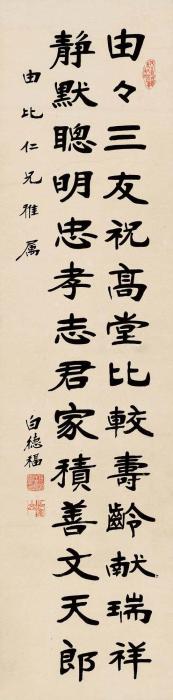 由々三友祝高堂比較壽齡献瑞祥
静默聰明忠孝志君家積善文天郎
由比仁兄雅属
白德福